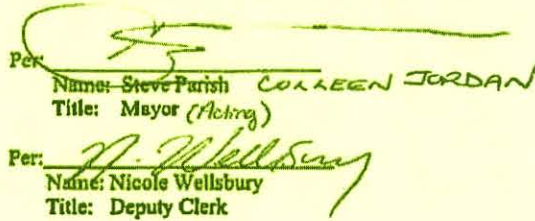 Per:
Name: Steve Parish COLLEEN JORDAN
Title: Mayor (Acting)
Per: N. Wellsbury
Name: Nicole Wellsbury
Title: Deputy Clerk